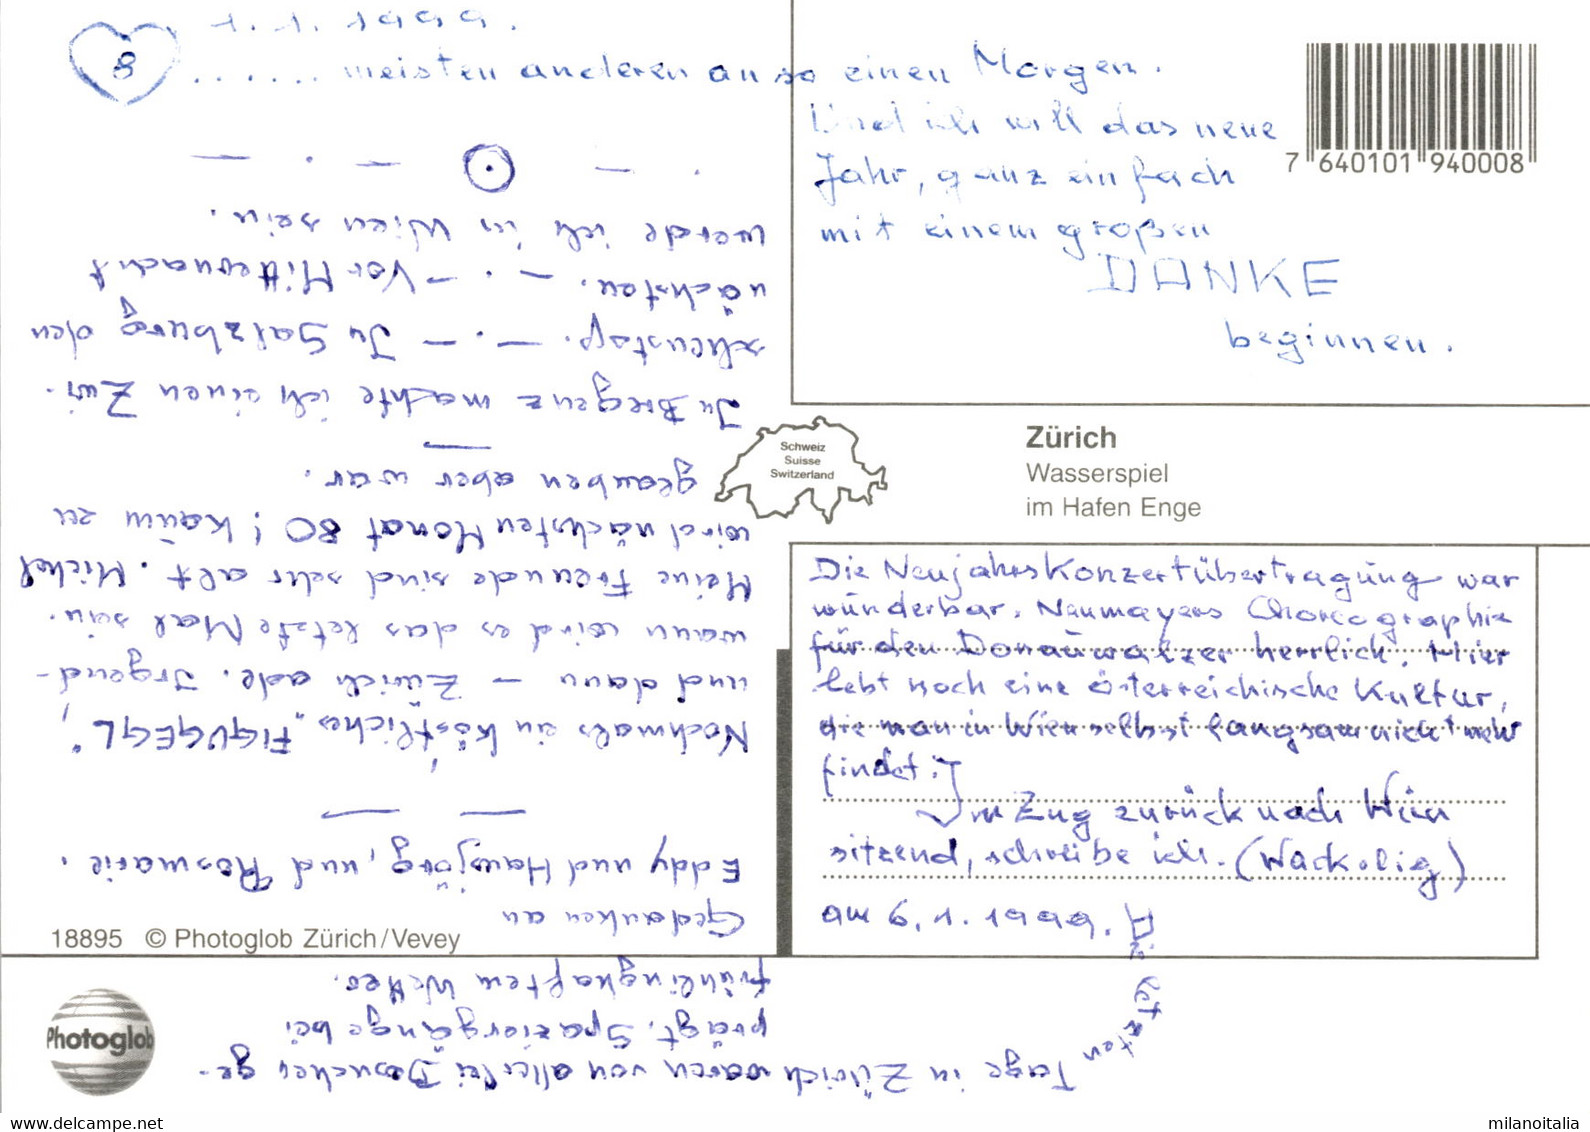 8
1. 1. 1999.
...... meisten anderen an so einen Morgen.
Und ich will das neue
Jahr, ganz einfach
mit einem großen
DANKE
beginnen.
7 640101 940008
Schweiz
Suisse
Switzerland
Zürich
Wasserspiel
im Hafen Enge
Die Neujahrskonzertübertragung war
wunderbar. Neumayers Choreographie
für den Donauwalzer herrlich. Hier
lebt noch eine österreichische Kultur,
die man in Wien selbst langsam nicht mehr
findet.
Im Zug zurück nach Wien
sitzend, schreibe ich. (Wackelig)
am 6. 1. 1999. Die letzten
Tage in Zürich waren von allerlei Besuchen ge-
prägt. Spaziergänge bei
frühlingshaftem Wetter.
Gedanken an
Eddy und Hansjörg, und Rosmarie.
Nochmals ein köstliches "FIGUGEGL",
und dann – Zürich ade. Irgend-
wann wird es das letzte Mal sein.
Meine Freunde sind sehr alt. Michel
wird nächsten Monat 80! Kaum zu
glauben aber war.
In Bregenz machte ich einen Zwi-
schenstop. – . – In Salzburg den
nächsten. – . – Vor Mitternacht
werde ich in Wien sein.
18895 © Photoglob Zürich/Vevey
Photoglob
www.delcampe.net
milanoitalia